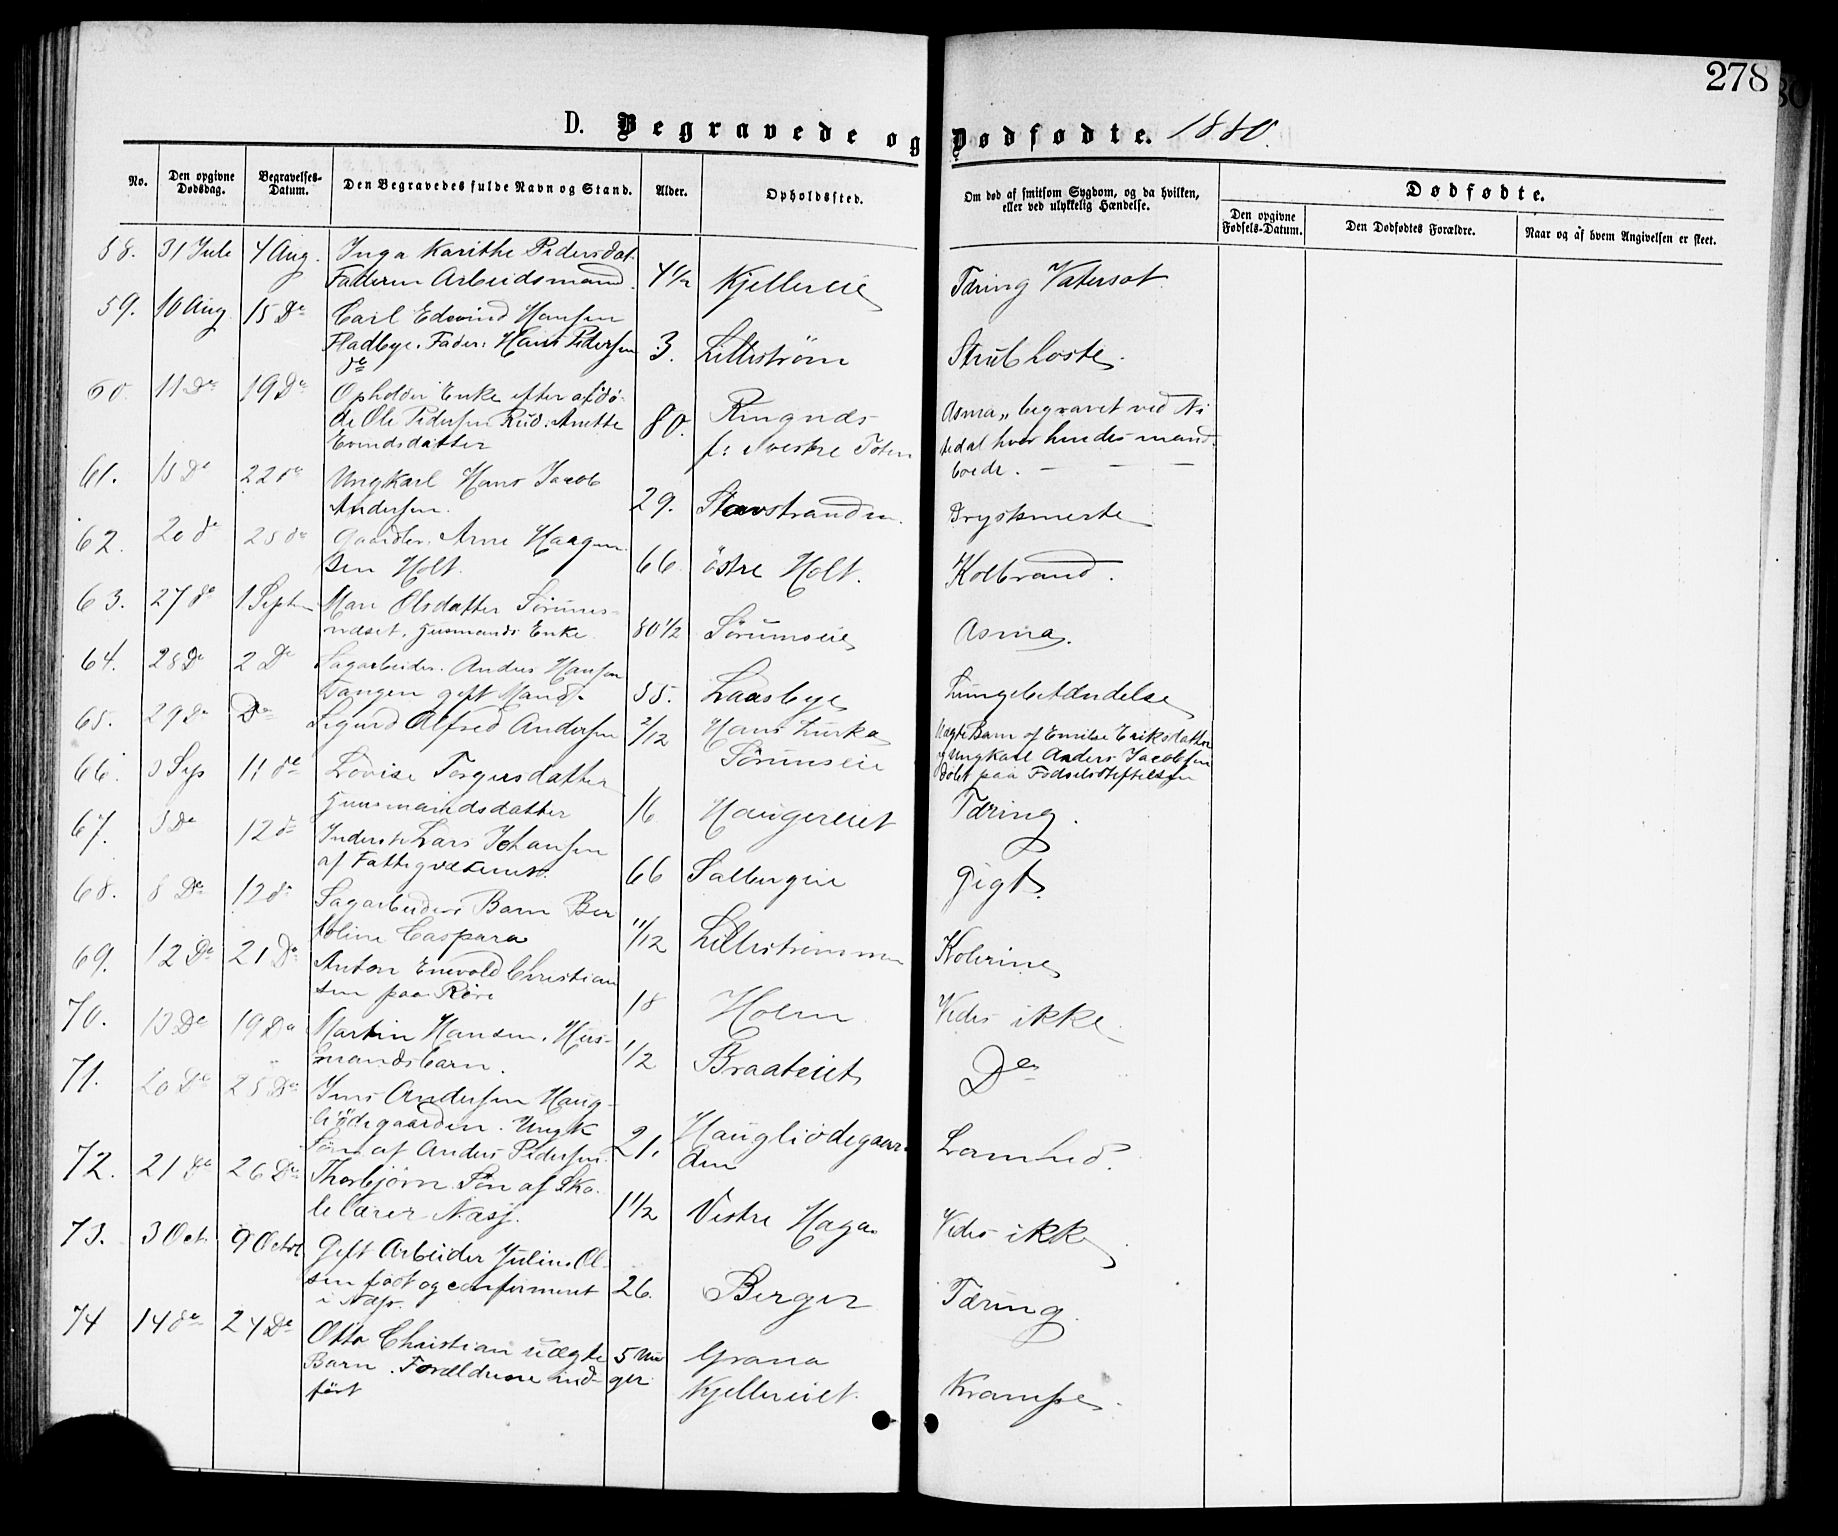 278
D. Begravede og Dødfødte. 1880.
No.
Den opgivne Dødsdag.
Begravelses-Datum.
Den Begravedes fulde Navn og Stand.
Alder.
Opholdssted.
Om død af smitsom Sygdom, og da hvilken, eller ved ulykkelig Hændelse.
Dødfødte.
Den opgivne Fødsels-Datum.
Den Dødfødtes Forældre.
Naar og af hvem Angivelsen er skeet.
58. 31 Juli 4 Aug. Inga Karithe Pedersdat.
Faderen Arbeidsmand. 4 1/2 Kjellereie Tæring Vatersot
59. 10 Aug 15 De Carl Edvind Hansen
Fladbye. Fader: Hans Pedersen 3. Lillestrøm Strubhoste.
de
60. 11 De 19 De Opholder Enke efter afdø-
de Ole Pedersen Rud. Anette 80. Ringnds Asma, begravet ved Ni
Evindsdatter f: i vestre Toten tedal hvor hendes mand
boede. - - -
61. 18 De 22 de Ungkarl Hans Jacob
Andersen. 29. Stavstranden. Brystsmerte
62. 20 de 28 de Gaardbr. Arne Haagen
sen Holt. 66 østre Holt. Kolbrand.
63. 27 de 1 Septr Mari Olsdatter Sørums-
ndset. Husmands Enke. 80 1/2 Sørumseie Asma.
64. 28 De 2 De Sagarbeider. Anders Hansen
Tangen gift Mand. 55. Laasbye Lungebetændelse
65. 29 De De Sigurd Alfred Andersen 2/12 Hans Lurka
Sørumseie
Uægte Barn af Emilie Eriksdatter
og Ungkarl Anders Jacobsen
Døbt paa Fødselsstiftelsen
66. 3 Sep 11 de Lovise Torgersdatter
Huusmandsdatter 16 Haugereiet Tæring.
67. 3 De 12 de Inderst Lars Johansen
af Fattigvæsenet. 66 Salbergeie Gigt.
68. 8 De 12 de Sagarbeiders Barn Ber
toline Caspara 11/12 Lillestrømmen Kolerine
69. 12 De 21 De Anton Enevold Christian
sen paa Røre 18 Holm Vides ikke
70. 13 De 19 De Martin Hansen. Hus-
mandsbarn. 1/2 Braateiet De
71. 20 De 25 De Jens Andersen Haug-
liødegaarden. Ungk
Søn af Anders Pedersen. 21. Haugliødegaar-
den Lamhed.
72. 21 De 26 De Thorbjørn. Søn af Sko-
lelærer Næss. 1 1/2 Vestre Haga. Vides ikke
73. 3 Oct. 9 Octbr Gift Arbeider Julius Ol
sen født og confirmeret 26. Berger Tæring.
i Næs.
74 14 de 24 De Otto Christian uægte 5 Uu Grana
Barn. Forældrene ind- ger Kjellereiet. Krampe.
ført